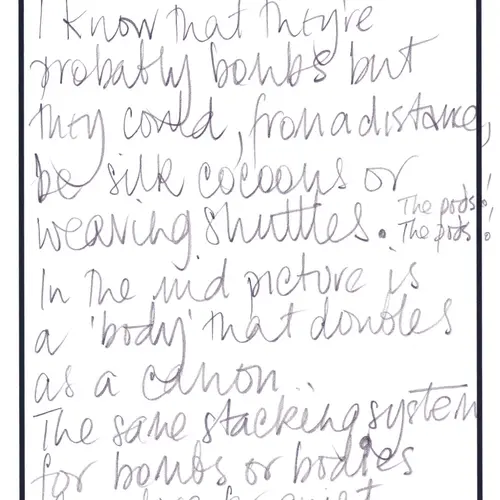 I know that they're
probably bombs but
they could, from a distance,
be silk cocoons or
weaving shuttles. The pods!
The pods!
In the mid picture is
a 'body' that doubles
as a canon
The same stacking system
for bombs or bodies